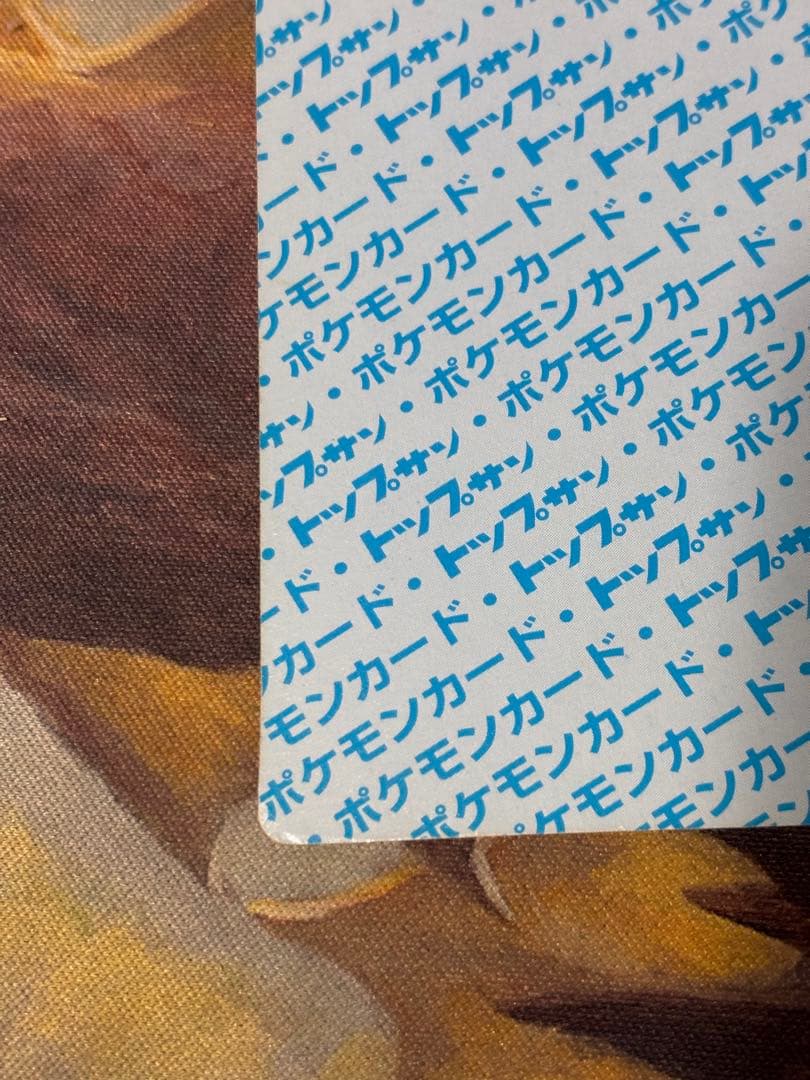 プサン・
トップサン・
・トップサン・ポ
ード・トップサン・ポ
ンカード・トップサン・ポ
ケモンカード・トップサン・ポケ
・ポケモンカード・トップサン・ポ
サン・ポケモンカード・トップサ
ップサン・ポケモンカード・トッ
・トップサン・ポケモンカード・
ード・トップサン・ポケモンカー
ンカード・トップサン・ポケモン
モンカード・トップサン・ポケ
ポケモンカード・トップサン・
・ポケモンカード・トップサ
ポケモンカード・トッ
ポケモンカード・
モンカー